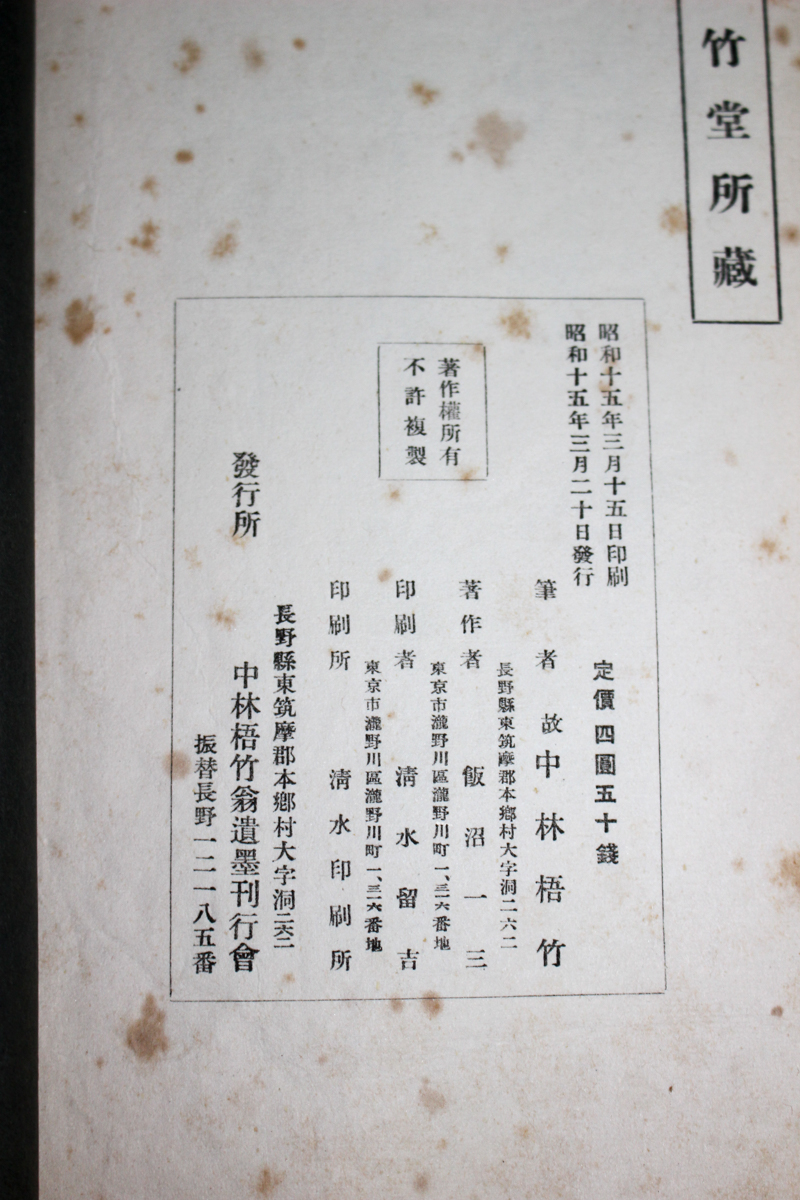 竹堂所藏
昭和十五年三月十五日印刷
昭和十五年三月二十日發行
定價四圓五十錢
著作權所有
不許複製
筆者 故中林梧竹
長野縣東筑摩郡本鄕村大字洞二六二
著作者 飯沼一三
東京市瀧野川區瀧野川町一、三一六番地
印刷者 淸水留吉
東京市瀧野川區瀧野川町一、三一六番地
印刷所 淸水印刷所
長野縣東筑摩郡本鄕村大字洞二六二
發行所 中林梧竹翁遺墨刊行會
振替長野一二一八五番